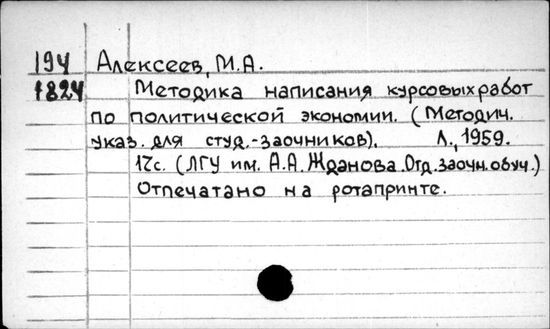 194 Алексеев, М.А.
1824 Методика написания курсовых работ
по политической экономии. (Методич.
указ. для студ.-заочников). Л., 1959.
17с. (ЛГУ им. А.А.Жданова.Отд.заочн.обуч.)
Отпечатано на ротапринте.